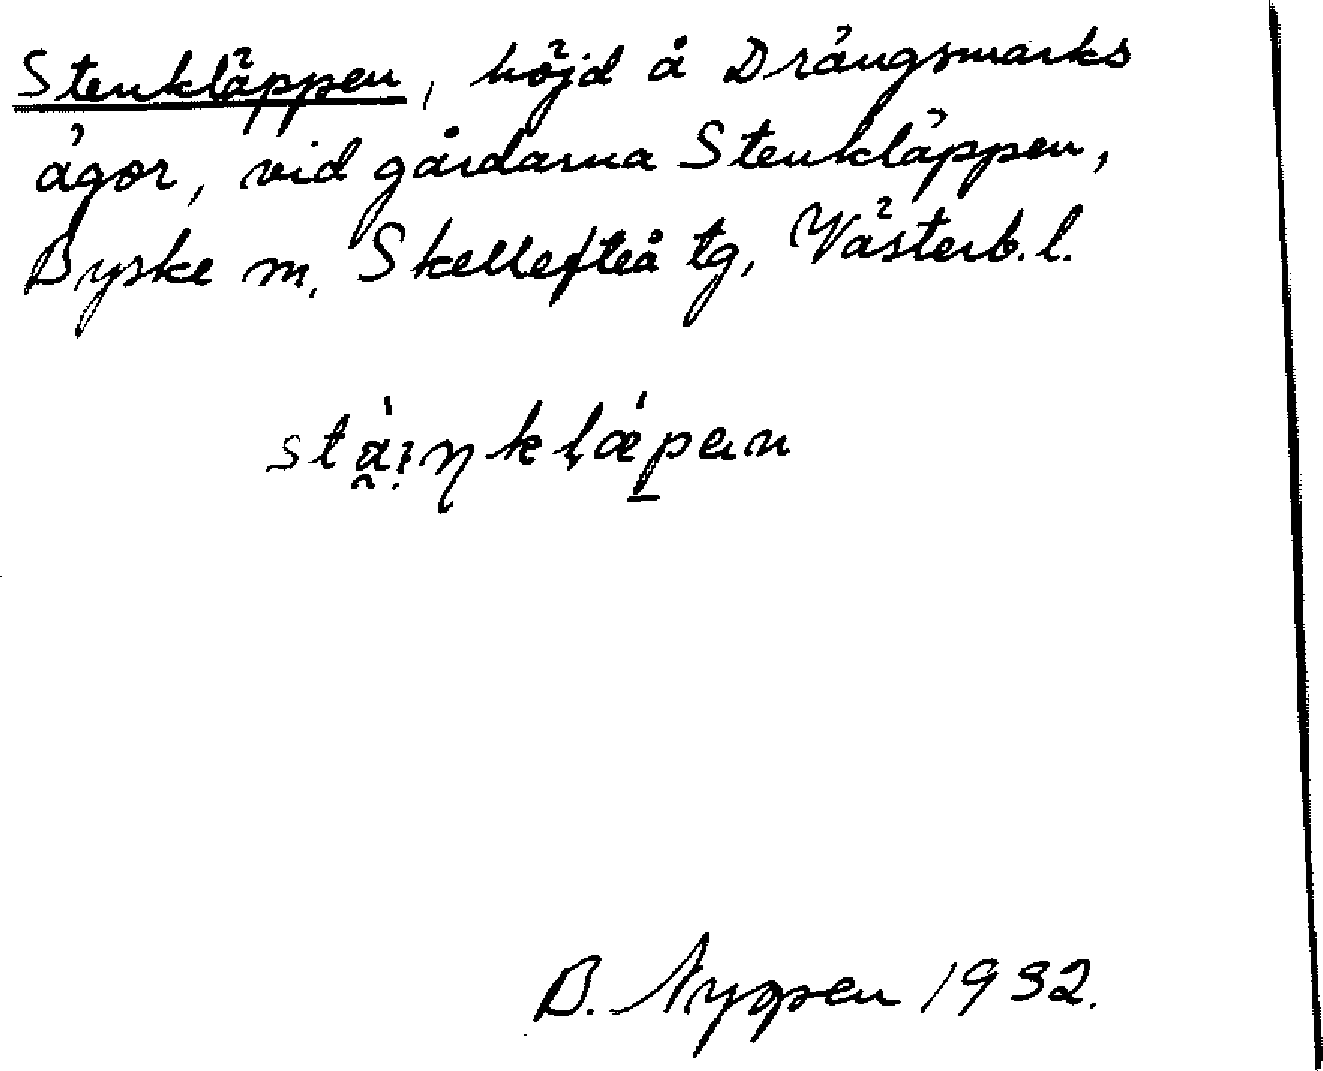 Stenkläppen, höjd å Drängsmarks
ägor, vid gårdarna Stenkläppen,
Byske sn. Skellefteå tg, Västerb. l.
B. Nyqsen 1932.